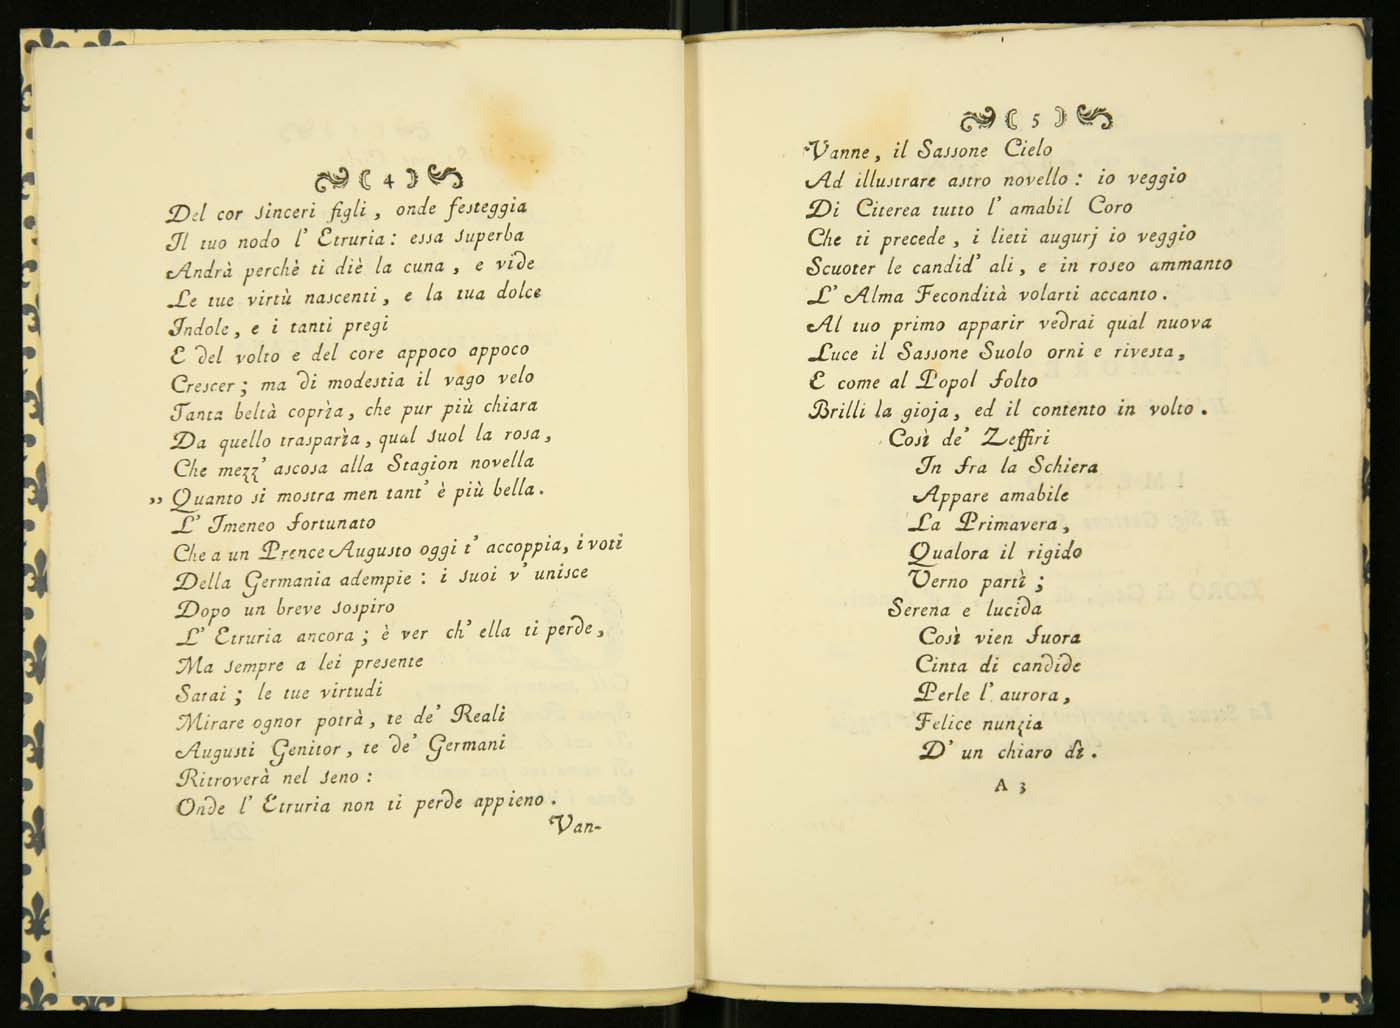 ( 4 )
Del cor sinceri figli, onde festeggia
Il tuo nodo l' Etruria: essa superba
Andrà perchè ti diè la cuna, e vide
Le tue virtù nascenti, e la tua dolce
Indole, e i tanti pregi
E del volto e del core appoco appoco
Crescer; ma di modestia il vago velo
Tanta beltà coprìa, che pur più chiara
Da quello trasparìa, qual suol la rosa,
Che mezz' ascosa alla Stagion novella
„ Quanto si mostra men tant' è più bella.
L' Imeneo fortunato
Che a un Prence Augusto oggi t' accoppia, i voti
Della Germania adempie: i suoi v' unisce
Dopo un breve sospiro
L' Etruria ancora; è ver ch' ella ti perde,
Ma sempre a lei presente
Sarai; le tue virtudi
Mirare ognor potrà, te de' Reali
Augusti Genitor, te de' Germani
Ritroverà nel seno:
Onde l' Etruria non ti perde appieno.
Van-
( 5 )
Vanne, il Sassone Cielo
Ad illustrare astro novello: io veggio
Di Citerea tutto l' amabil Coro
Che ti precede, i lieti augurj io veggio
Scuoter le candid' ali, e in roseo ammanto
L' Alma Fecondità volarti accanto.
Al tuo primo apparir vedrai qual nuova
Luce il Sassone Suolo orni e rivesta,
E come al Popol folto
Brilli la gioja, ed il contento in volto.
Così de' Zeffiri
In fra la Schiera
Appare amabile
La Primavera,
Qualora il rigido
Verno partì;
Serena e lucida
Così vien fuora
Cinta di candide
Perle l' aurora,
Felice nunzia
D' un chiaro dì.
A 3